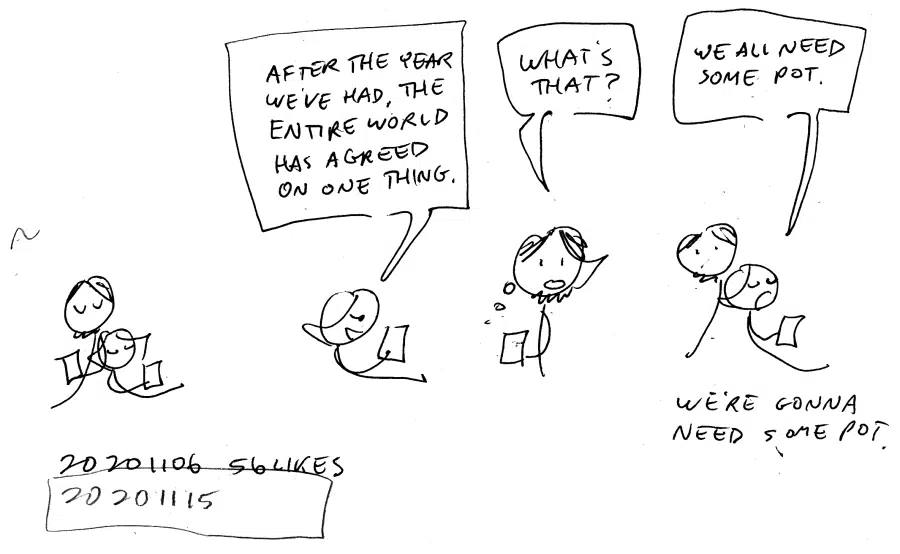 AFTER THE YEAR
WE'VE HAD, THE
ENTIRE WORLD
HAS AGREED
ON ONE THING.
WHAT'S
THAT?
WE ALL NEED
SOME POT.
WE'RE GONNA
NEED SOME POT.
20201106 56 LIKES
20201115